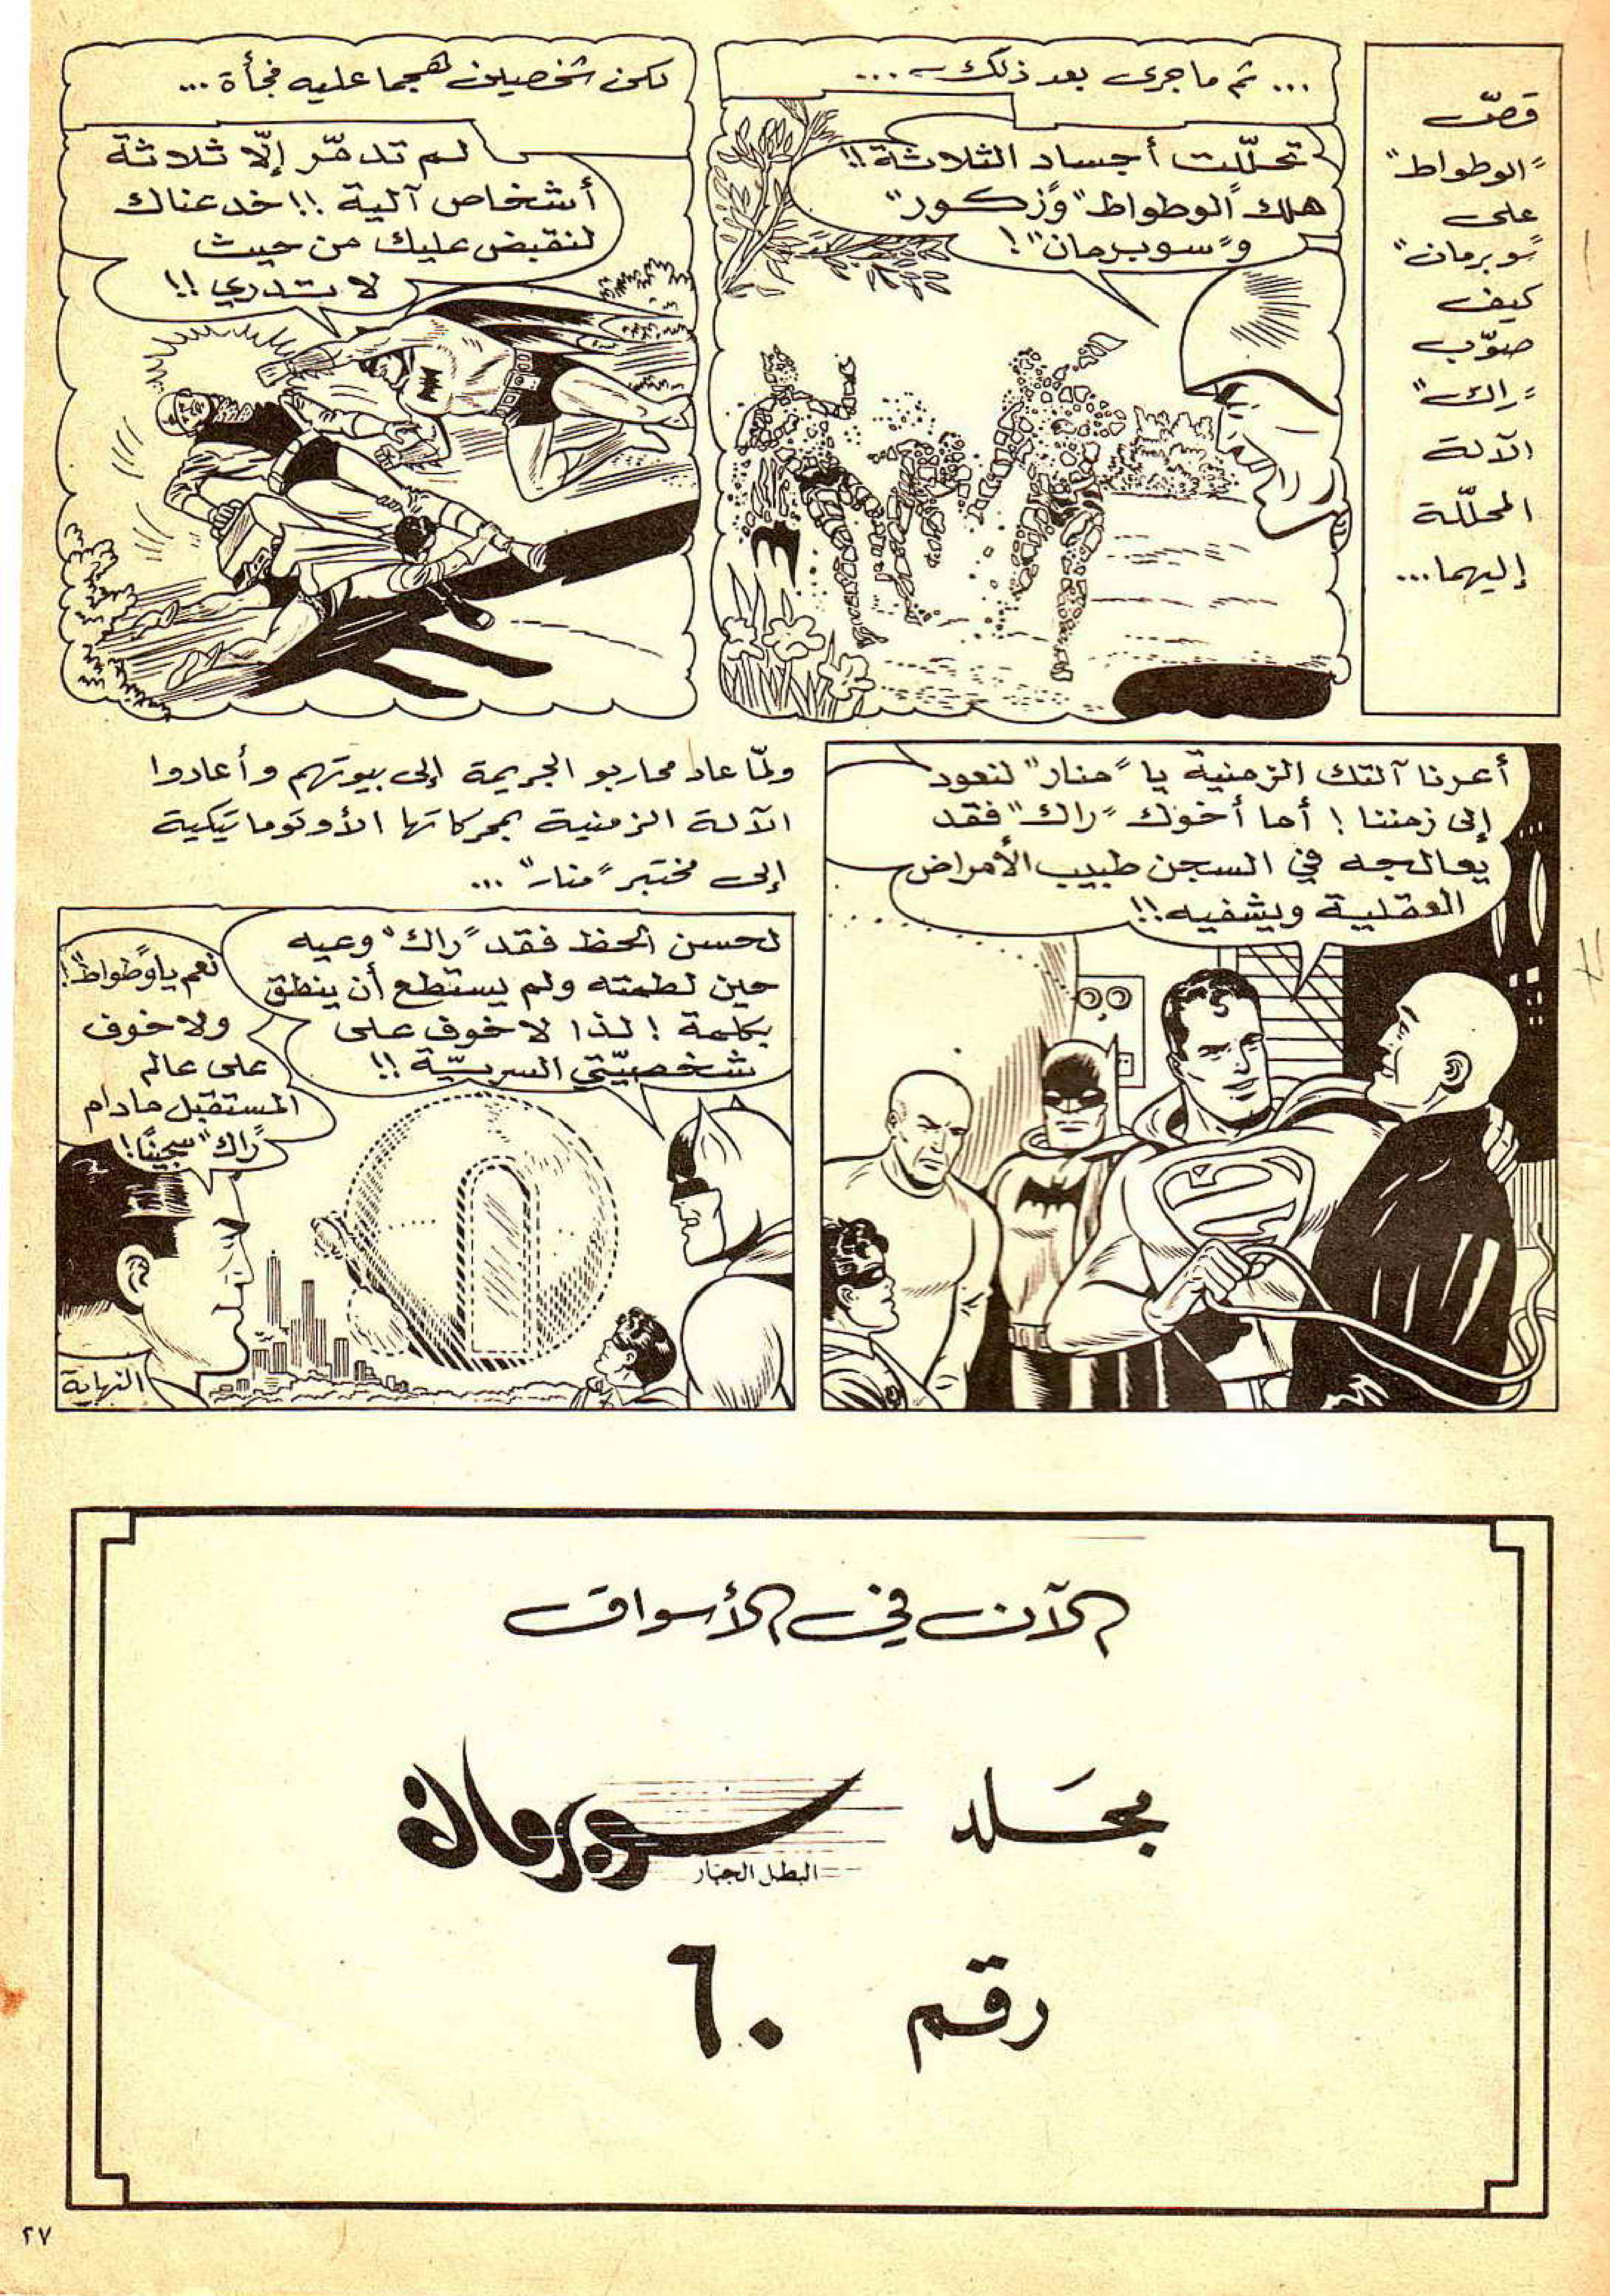 قصّ
"الوطواط"
على
"سوبرمان"
كيف
صوّب
"راك"
الآلة
المحلّلة
إليهما...
... ثم ما جرى بعد ذلك ...
تحلّلت أجساد الثلاثة!!
هلك "الوطواط" و"زكور"
و"سوبرمان"!
لكن شخصين هجما عليه فجأة ...
لم تدمّر إلّا ثلاثة
أشخاص آلية !! خدعناك
لنقبض عليك من حيث
لا تدري !!
أعرنا آلتك الزمنية يا "منار" لنعود
إلى زمننا ! أما أخوك "راك" فقد
يعالجه في السجن طبيب الأمراض
العقلية ويشفيه !!
ولمّا عاد محاربو الجريمة إلى بيوتهم وأعادوا
الآلة الزمنية بمحركاتها الأوتوماتيكية
إلى مختبر "منار" ...
لحسن الحظ فقد "راك" وعيه
حين لطمته ولم يستطع أن ينطق
بكلمة ! لذا لا خوف على
شخصيّتي السريّة !!
نعم يا "وطواط"!
ولا خوف
على عالم
المستقبل مادام
"راك" سجينًا!
النهاية
الآن في الأسواق
مجَلد سوبرمان
البطل الجبار
رقم ٦٠
٢٧